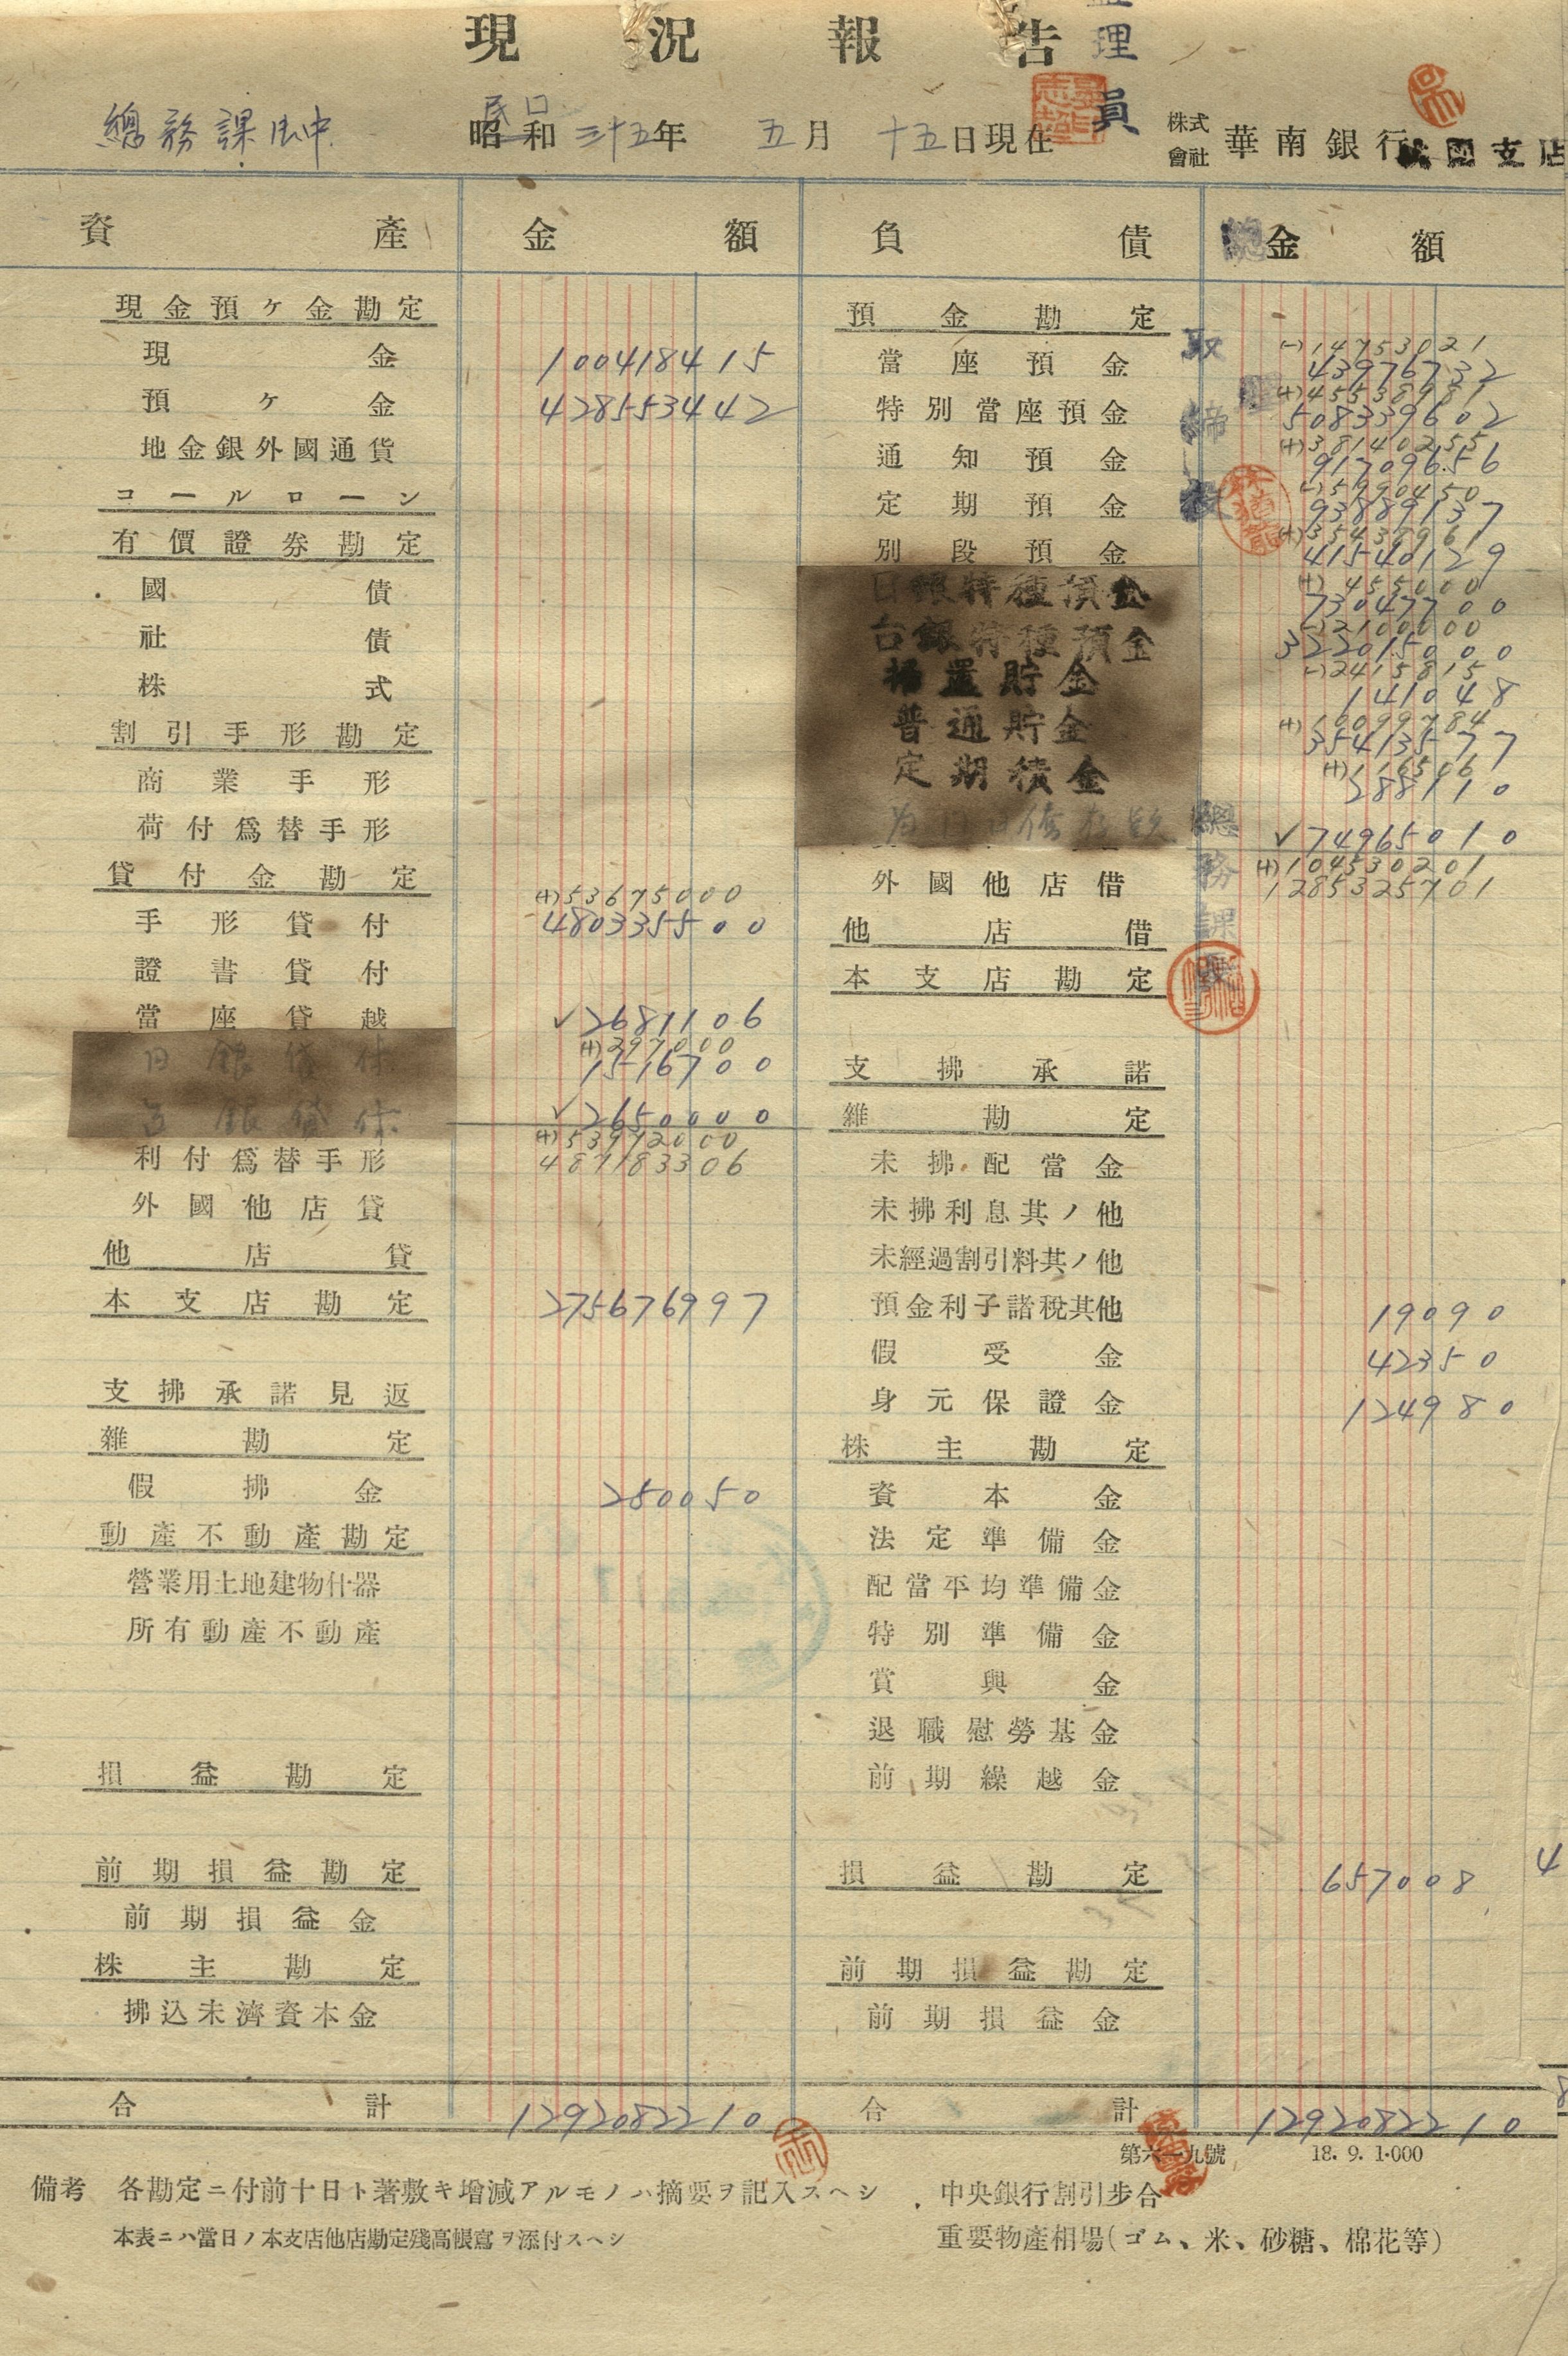 現況報告
理員
總務課
昭和三十五年 五月 十五日現在
民国
株式會社 華南銀行 支店
資產 金額 負債 金額
現金預ケ金勘定
現金 1004184 15
預ケ金 4285534 42
地金銀外國通貨
コールローン
有價證券勘定
國債
社債
株式
割引手形勘定
商業手形
荷付爲替手形
貸付金勘定
(+)536750 00
手形貸付 4803355 00
證書貸付
當座貸越 ✓26811 06
(+)2970 00
日銀貸付 15167 00
台銀貸付 ✓26500 00
(+)539720 00
利付爲替手形 4871833 06
外國他店貸
他店貸
本支店勘定 2756769 97
支拂承諾見返
雜勘定
假拂金 2500 50
動產不動產勘定
營業用土地建物什器
所有動產不動產
損益勘定
前期損益勘定
前期損益金
株主勘定
拂込未濟資本金
合計 12920822 10
預金勘定
(-)147530 21
當座預金 439767 32
(+)455389 81
特別當座預金 5083396 02
(+)381402 55
通知預金 917096 56
(-)59904 50
定期預金 938891 37
(+)354379 61
別段預金 415401 29
(+)4550 00
日銀特種預金 730477 00
(-)21000 00
台銀特種預金 3220150 00
(-)24158 15
据置貯金 1410 48
(+)100997 84
普通貯金 354135 77
(+)1165 06
定期積金 2881 10
✓749650 10
(+)1045302 01
外國他店借 12853257 01
他店借
本支店勘定
支拂承諾
雜勘定
未拂配當金
未拂利息其ノ他
未經過割引料其ノ他
預金利子諸稅其他 190 90
假受金 423 50
身元保證金 1249 80
株主勘定
資本金
法定準備金
配當平均準備金
特別準備金
賞與金
退職慰勞基金
前期繰越金
損益勘定 6570 08
前期損益勘定
前期損益金
合計 12920822 10
取締役
總務課長
第六一九號 18. 9. 1·000
備考 各勘定ニ付前十日ト著敷キ增減アルモノハ摘要ヲ記入スヘシ
本表ニハ當日ノ本支店他店勘定殘高帳寫ヲ添付スヘシ
中央銀行割引步合
重要物產相場(ゴム、米、砂糖、棉花等)